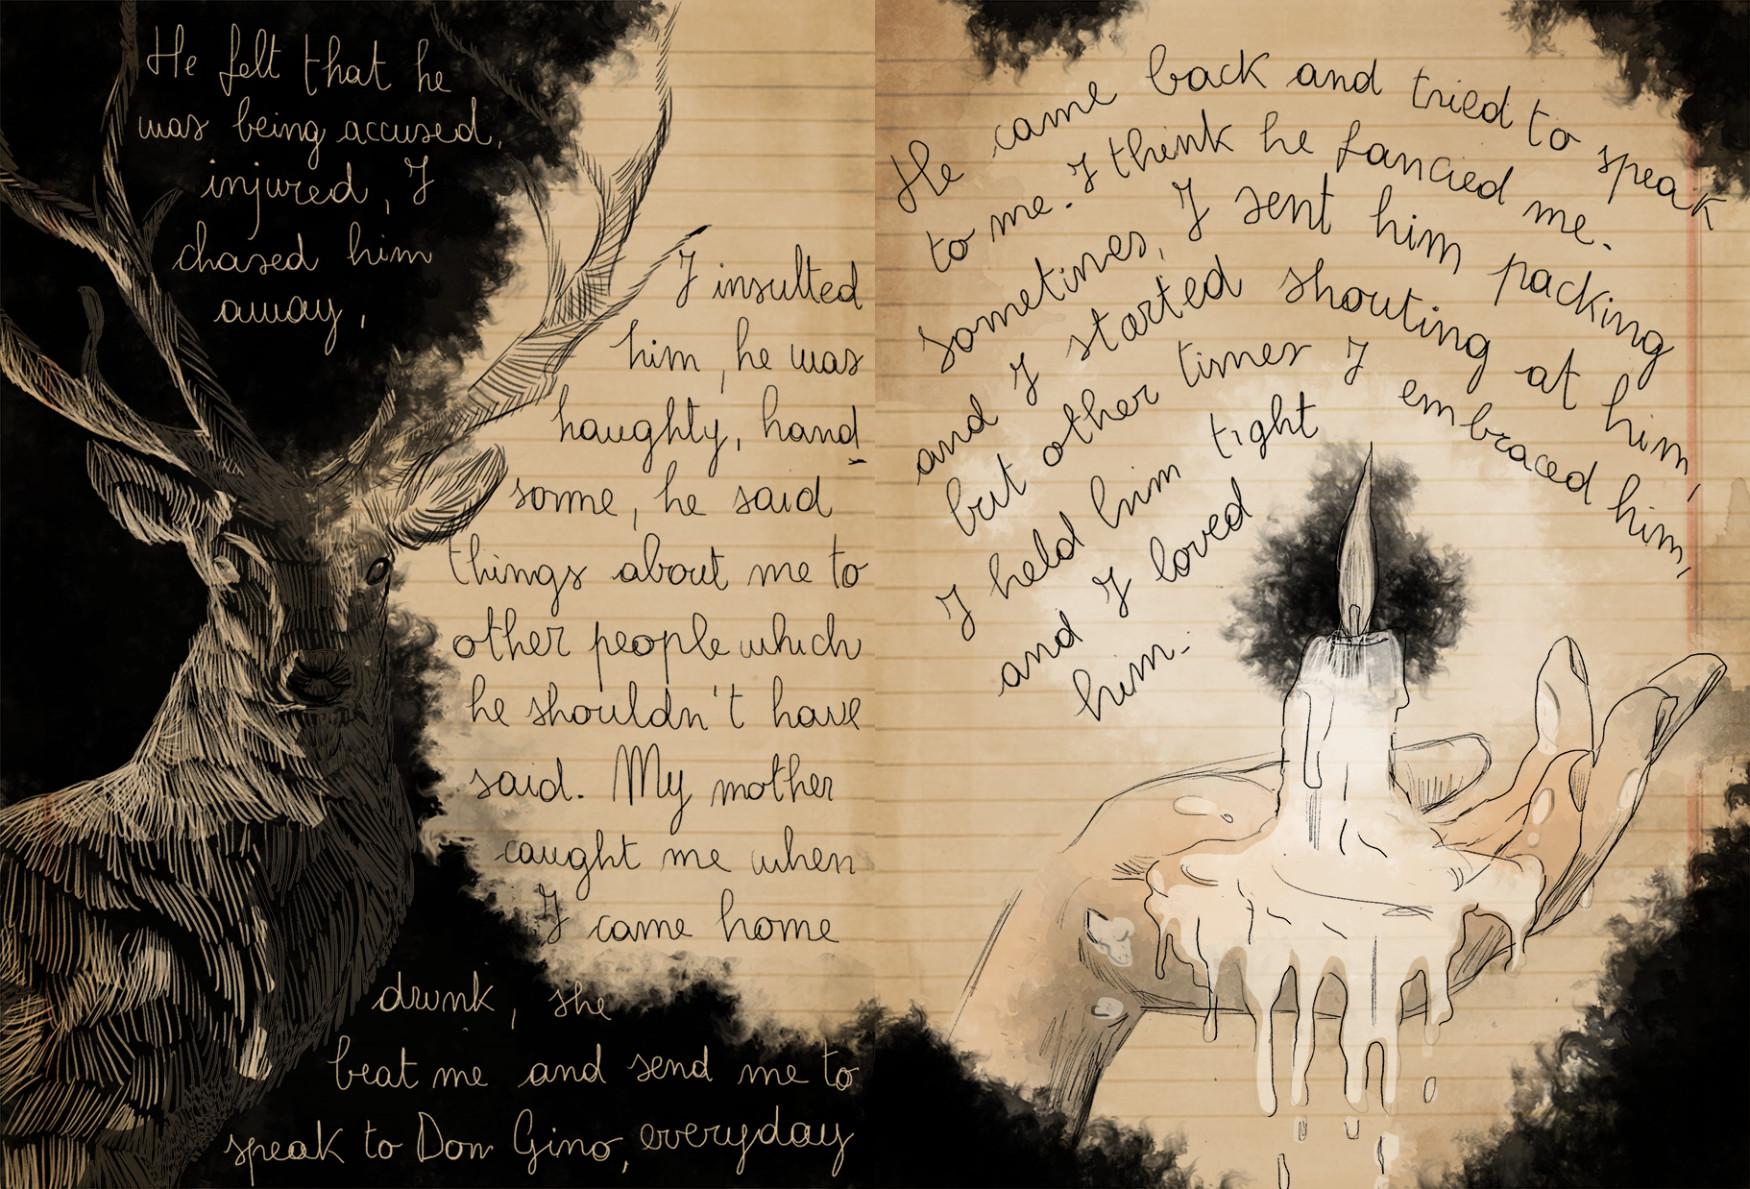 He felt that he
was being accused,
injured, I
chased him
away,
I insulted
him, he was
haughty, hand-
some, he said
things about me to
other people which
he shouldn't have
said. My mother
caught me when
I came home
drunk, she
beat me and send me to
speak to Don Gino, everyday
He came back and tried to speak
to me. I think he fancied me.
Sometimes, I sent him packing
and I started shouting at him,
but other times I embraced him,
I held him tight
and I loved
him.